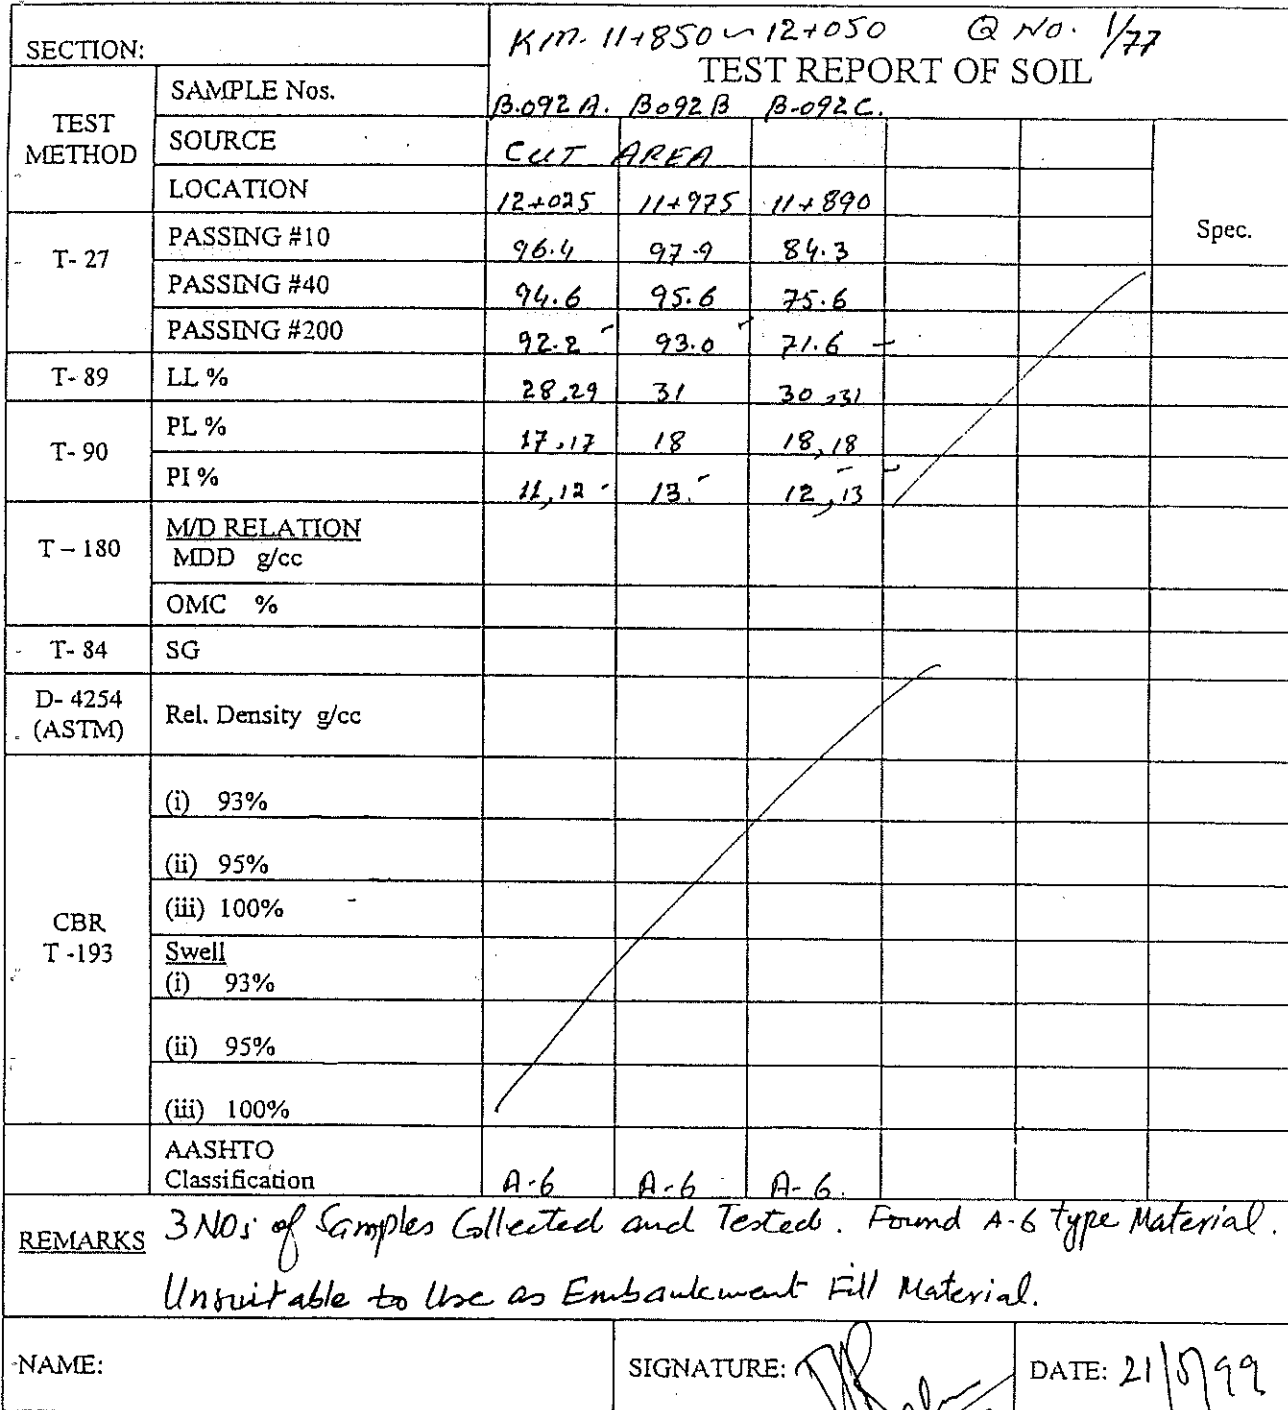 SECTION: KM. 11+850 ~ 12+050 Q NO. 1/77
TEST REPORT OF SOIL
TEST METHOD
SAMPLE Nos. B.092A. B092B B-092C.
SOURCE CUT AREA
LOCATION 12+025 11+975 11+890
Spec.
T- 27 PASSING #10 96.4 97.9 84.3
PASSING #40 94.6 95.6 75.6
PASSING #200 92.2 93.0 71.6
T- 89 LL % 28,29 31 30,31
T- 90 PL % 17,17 18 18,18
PI % 11,12 13. 12,13
T – 180 M/D RELATION
MDD g/cc
OMC %
T- 84 SG
D- 4254
(ASTM) Rel. Density g/cc
CBR
T -193
(i) 93%
(ii) 95%
(iii) 100%
Swell
(i) 93%
(ii) 95%
(iii) 100%
AASHTO
Classification A-6 A-6 A-6.
REMARKS 3 NOs of Samples Collected and Tested. Found A-6 type Material.
Unsuitable to Use as Embankment Fill Material.
NAME: SIGNATURE: DATE: 21/5/99